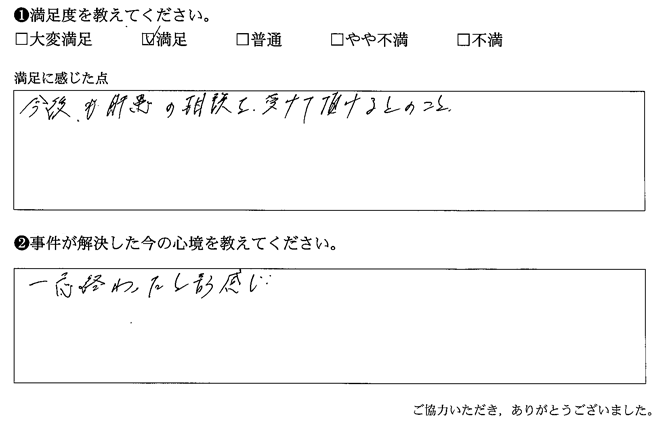 ❶満足度を教えてください。
□大変満足 ☑満足 □普通 □やや不満 □不満
満足に感じた点
今後も肝患の相談を、受けて頂けるとのこと、
❷事件が解決した今の心境を教えてください。
一応終わったと言う感じ
ご協力いただき，ありがとうございました。